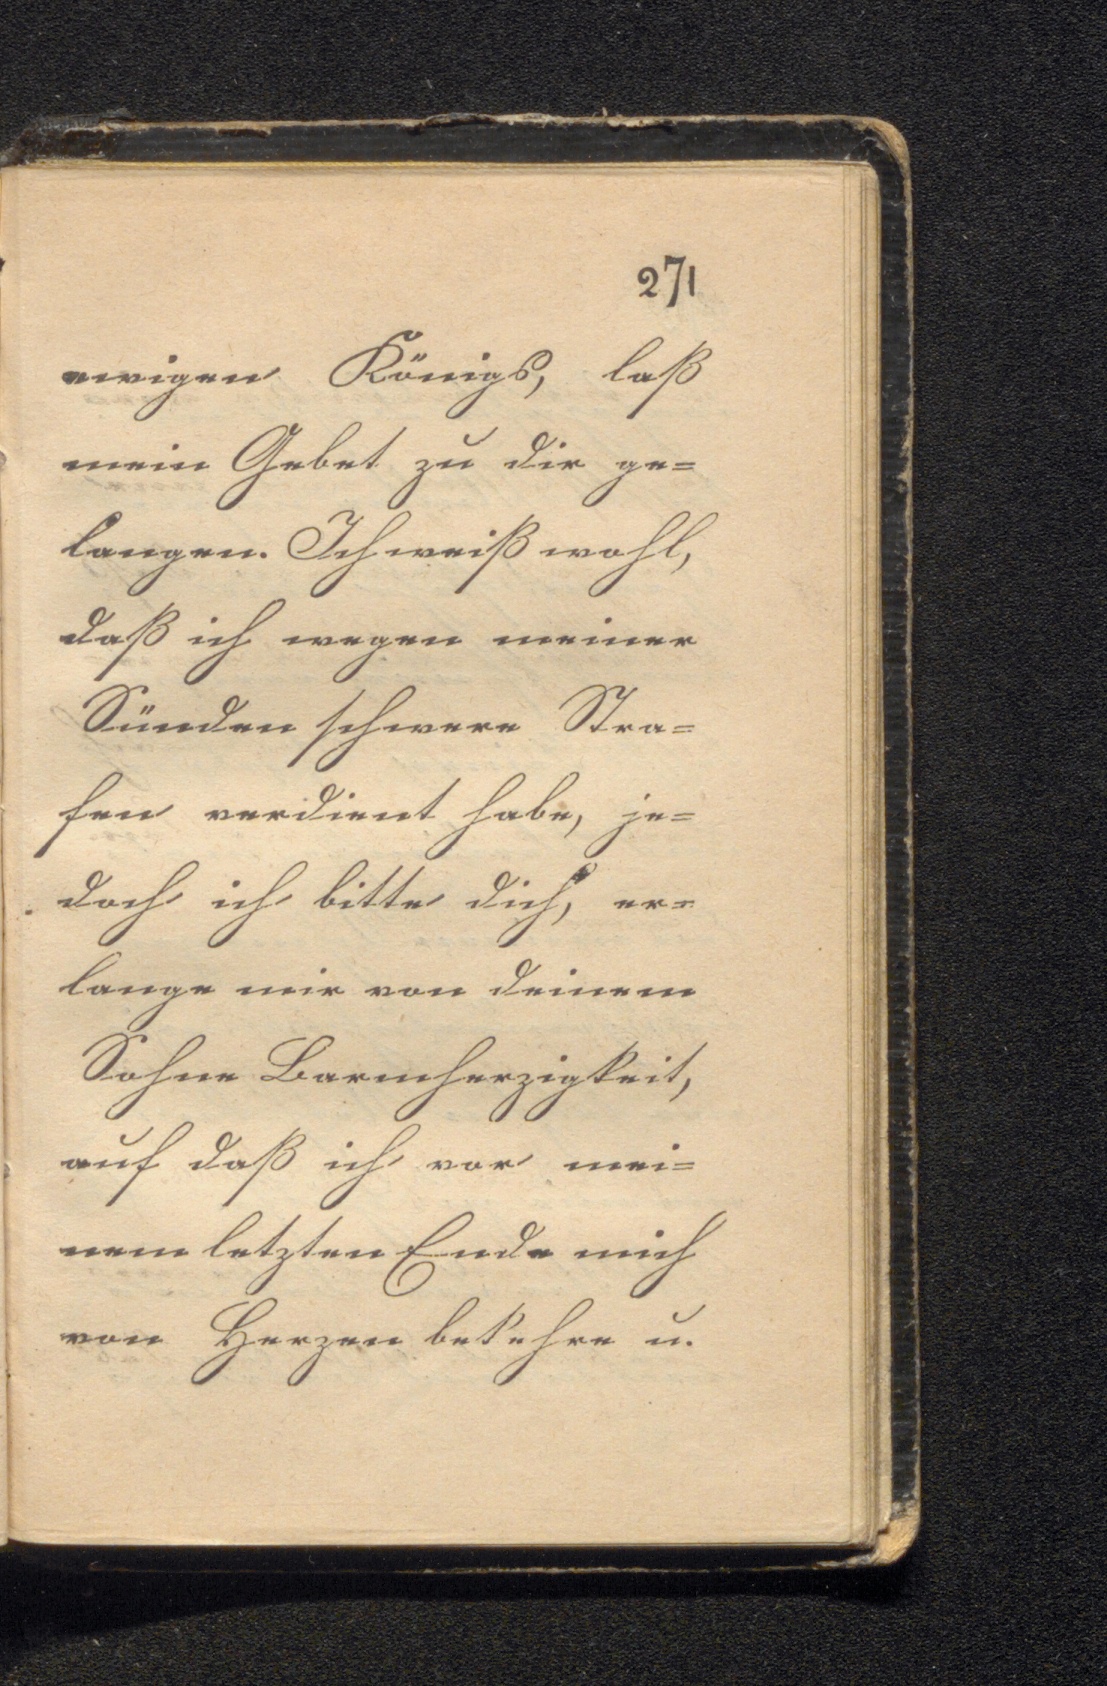 271
ewigen Königs, laß
mein Gebet zu dir ge=
langen. Ich weiß wohl,
daß ich wegen meiner
Sünden schwere Stra=
fen verdient habe, je=
doch ich bitte dich, er=
lange mir von deinem
Sohne Barmherzigkeit,
auf daß ich vor mei=
nem letzten Ende mich
von Herzen bekehre u.